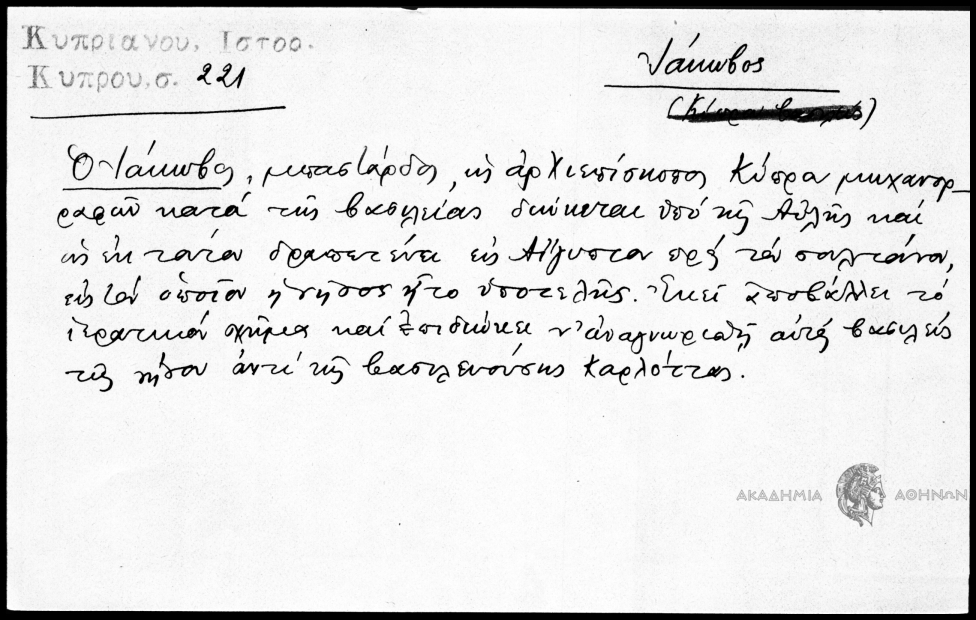 Κυπριανου, Ιστορ.
Κυπρου, σ. 221
Ἰάκωβος
(Κύπρου βασιλεὺς)
Ὁ Ἰάκωβος, μπαστάρδος, ὡς ἀρχιεπίσκοπος Κύπρου μηχανορ-
ραφῶν κατὰ τῆς βασιλείας διώκεται ὑπὸ τῆς Αὐλῆς καὶ
ὡς ἐκ τούτου δραπετεύει εἰς Αἴγυπτον πρὸς τὸν σουλτάνον,
εἰς τὸν ὁποῖον ἡ νῆσος ἦτο ὑποτελής. Ἐκεῖ ἀποβάλλει τὸ
ἱερατικὸν σχῆμα καὶ ἐπιδιώκει ν' ἀναγνωρισθῇ αὐτὸς βασιλεὺς
τῆς νήσου ἀντὶ τῆς βασιλευούσης Καρλόττας.
ΑΚΑΔΗΜΙΑ ΑΘΗΝΩΝ